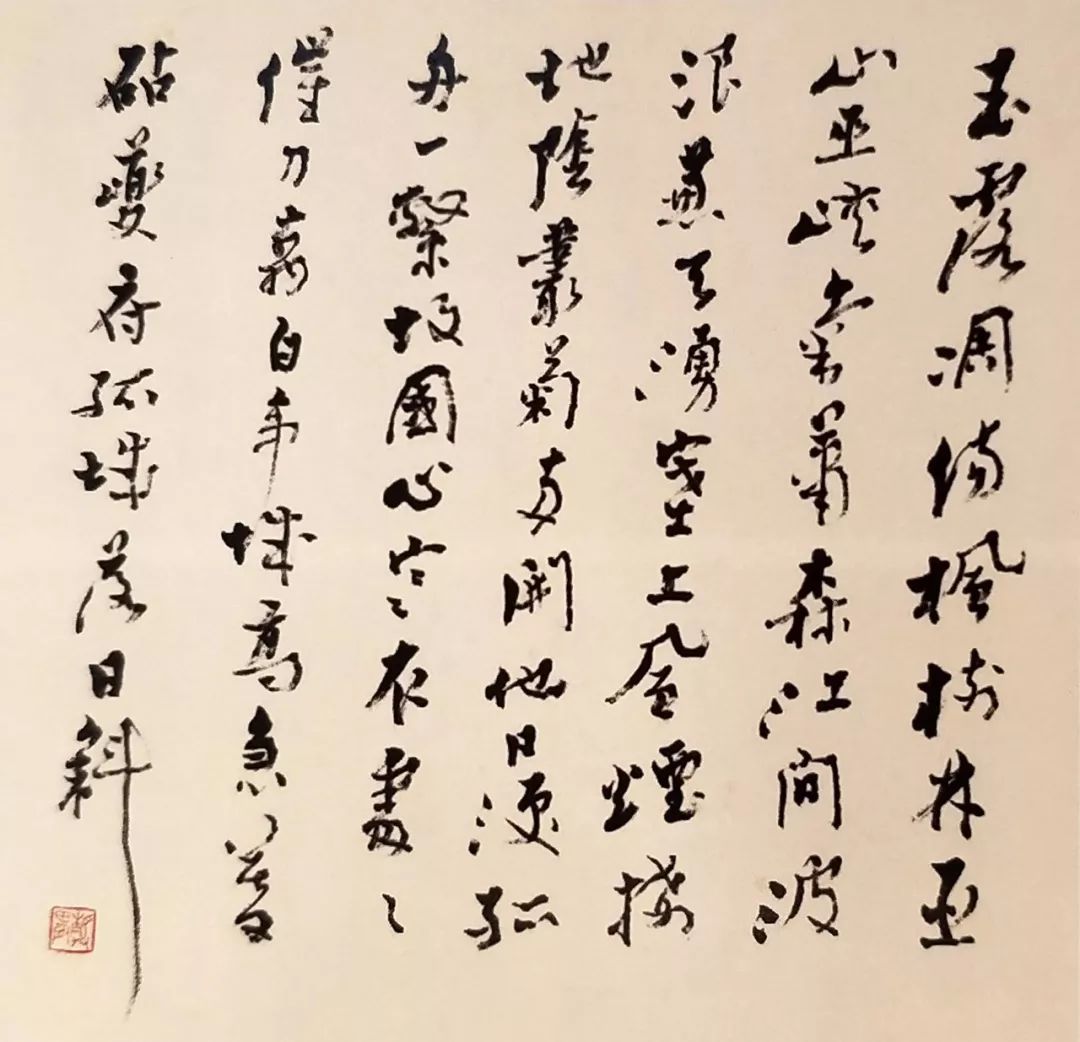 玉露凋傷楓樹林巫
山巫峽氣蕭森江間波
浪兼天湧塞上風煙接
地陰叢菊兩開他日淚孤
舟一繫故國心寒衣處々
催刀尺白帝城高急暮
砧夔府孤城落日斜